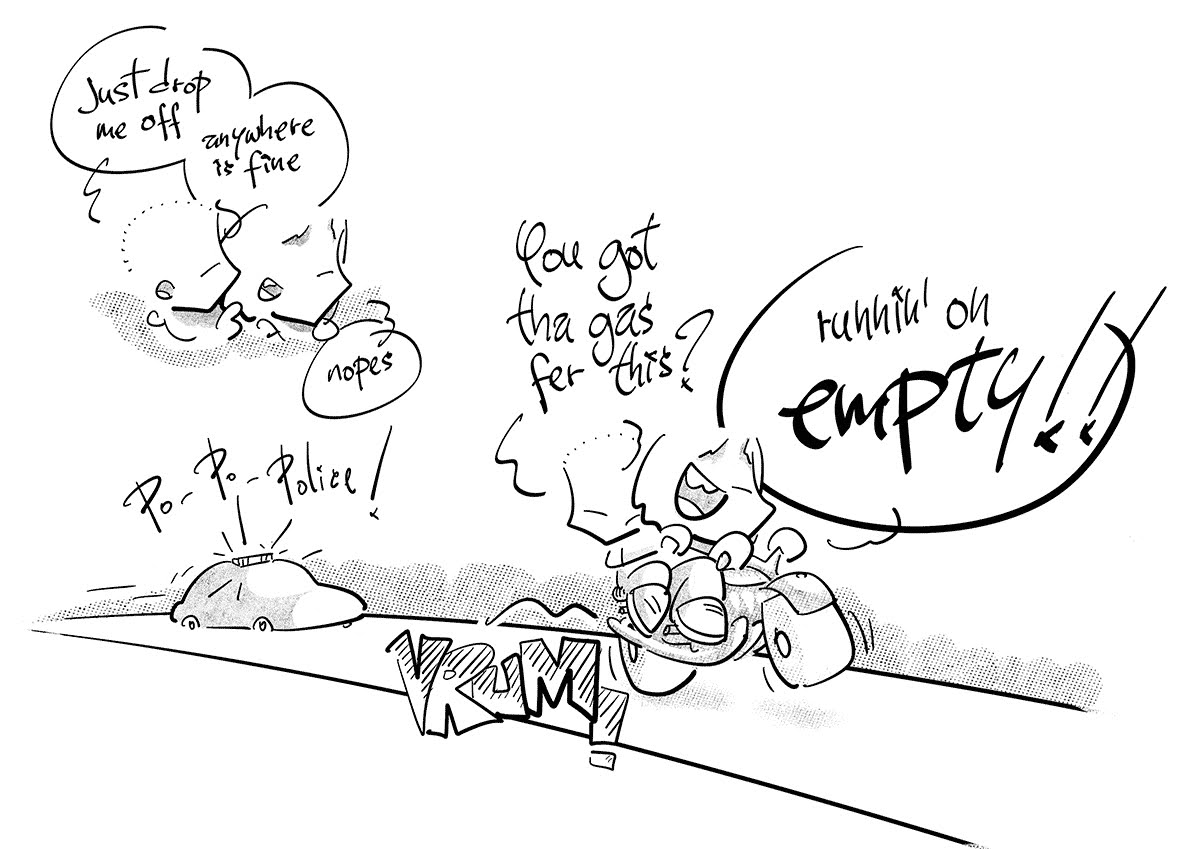 Just drop
me off
anywhere
is fine
nopes
You got
tha gas
fer this?
runnin' on
empty!!
Po-Po-Police!
VRUM!